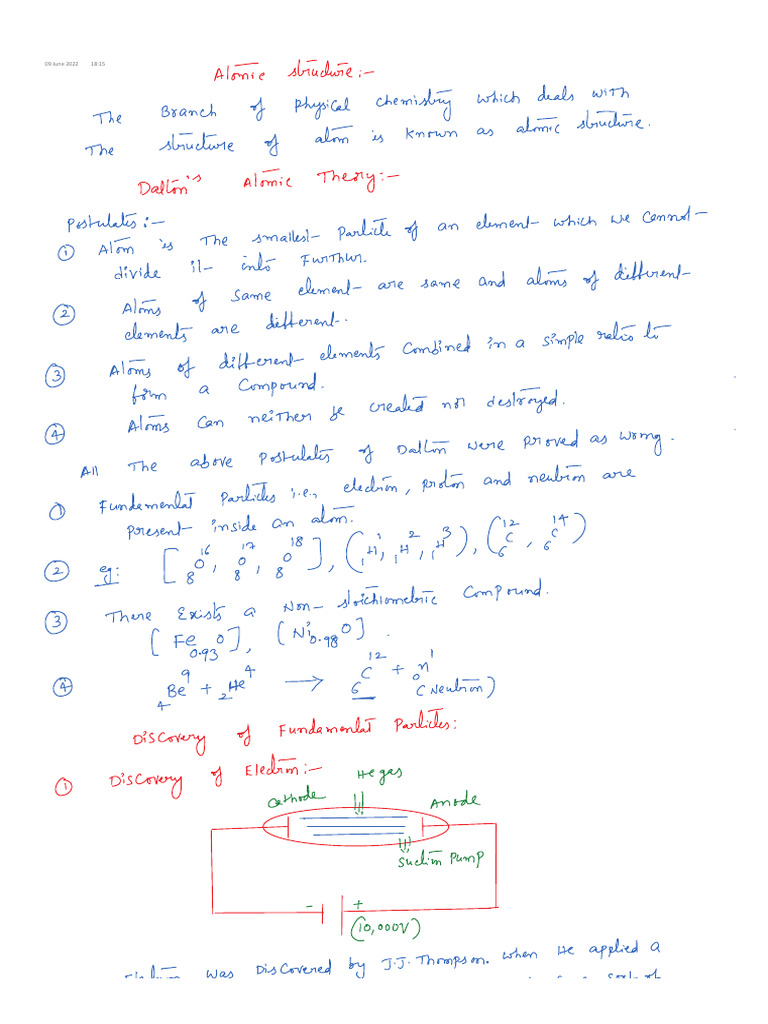 09 June 2022 18:15
Atomic structure:-
The Branch of Physical chemistry which deals with
The structure of atom is known as atomic structure.
Dalton's Atomic Theory:-
Postulates:-
① Atom is The smallest Particle of an element which we cannot
divide it into Furthur.
② Atoms of same element are same and atoms of different
elements are different.
③ Atoms of different elements combined in a simple ratio to
form a compound.
④ Atoms can neither be created nor destroyed.
All The above Postulates of Dalton were proved as wrong.
① Fundemental Particles i.e., electron, proton and neutron are
present inside an atom.
② eg: [₈O¹⁶, ₈O¹⁷, ₈O¹⁸], (₁H¹, ₁H², ₁H³), (₆C¹², ₆C¹⁴)
③ There Exists a Non-stoichiometric Compound.
[Fe₀.₉₃O], [Ni₀.₉₈O].
④ ₄Be⁹ + ₂He⁴ ⟶ ₆C¹² + ₀n¹
(Neutron)
Discovery of Fundamental Particles:
① Discovery of Electron:-
He gas
Cathode Anode
Suction Pump
- +
(10,000V)
Electron was Discovered by J.J. Thompson. when He applied a